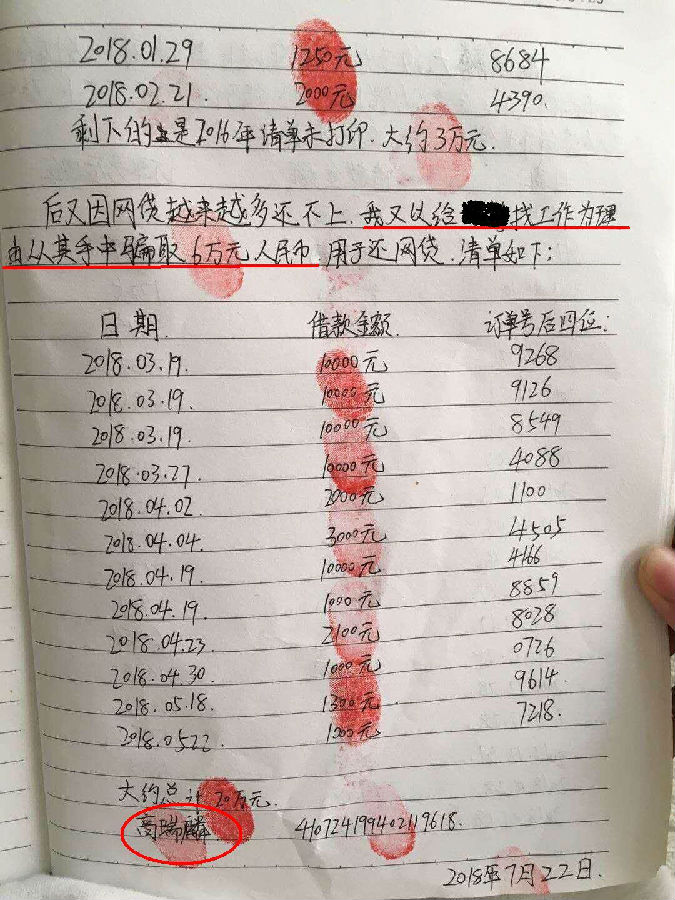 2018.01.29 1250元 8684
2018.02.21. 2000元 4390.
剩下的是2016年清单未打印.大约3万元.
后又因网贷越来越多还不上.我又以给 找工作为理
由从其手中骗取6万元人民币.用于还网贷.清单如下:
日期 借款金额. 订单号后四位:
2018.03.19. 10000元 9268
2018.03.19. 10000元 9126
2018.03.19 10000元 8549
2018.03.27 10000元 4088
2018.04.02 2000元 1100
2018.04.04. 3000元 4505
2018.04.19 10000元 4166
2018.04.19. 1000元 8859
2018.04.23 2100元 8028
2018.04.30 1000元 0726
2018.05.18. 1300元 9614
2018.0522 1000元 7218.
大约总计20万元.
高瑞麟 410724199402119618.
2018年7月22日.